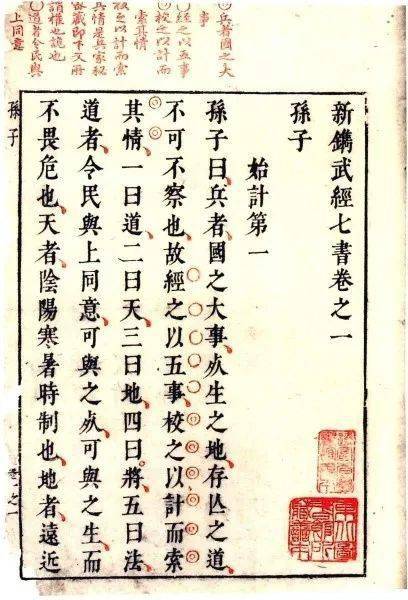 ○兵者國之大
事
○經之以五事
○校之以計而
索其情
校之以計而索
其情是兵家秘
密藏即下文所
謂權也詭也
○道者令民與
上同意
新鐫武經七書卷之一
孫子
始計第一
孫子曰兵者國之大事死生之地存亾之道
不可不察也故經之以五事校之以計而索
其情一曰道二曰天三曰地四曰將五曰法
道者令民與上同意可與之死可與之生而
不畏危也天者陰陽寒暑時制也地者遠近
孫子
卷之一